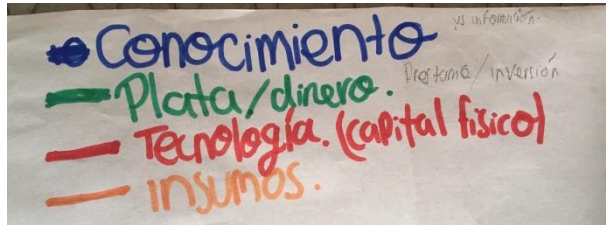 Conocimiento
ys información.
Plata/dinero.
Prestamo/inversión
Tecnología. (capital físico)
insumos.